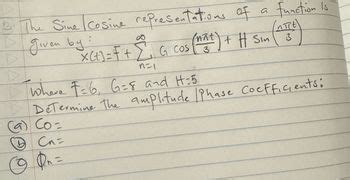 3. The Sine/Cosine representations of a function is
given by:
x(t)=F+ ∞ Σ n=1 G cos (nπt/3) + H sin (nπt/3)
Where F=6, G=8 and H=5.
DeTermine The amplitude/Phase Coefficients:
(a) Co=
(b) Cn=
(c) Øn=